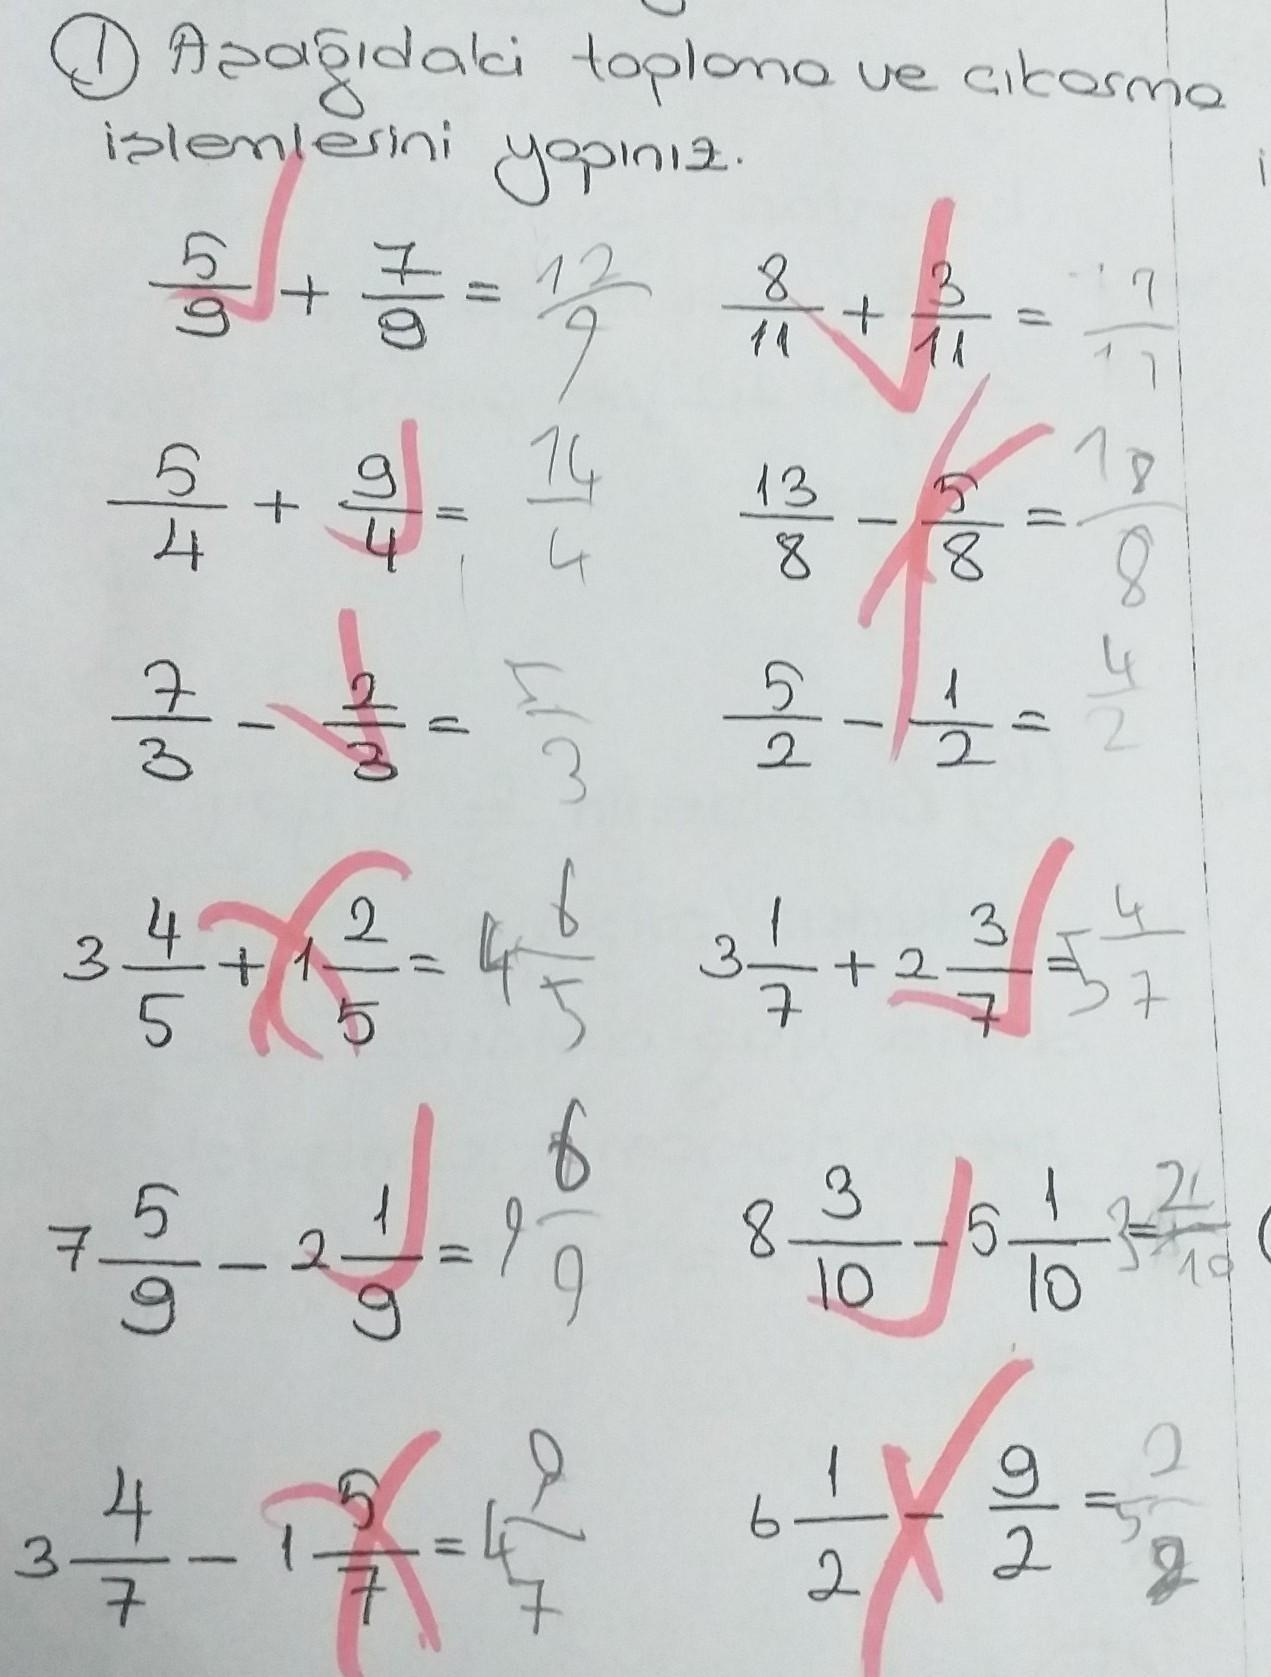 ① Aşağıdaki toplama ve çıkarma
işlemlerini yapınız.
5/9 + 7/9 = 12/9
8/11 + 3/11 = 11/11
5/4 + 9/4 = 14/4
13/8 - 5/8 = 18/8
7/3 - 2/3 = 5/3
5/2 - 1/2 = 4/2
3 4/5 + 1 2/5 = 4 6/5
3 1/7 + 2 3/7 = 5 4/7
7 5/9 - 2 1/9 = 9 6/9
8 3/10 - 5 1/10 = 3 2/10
3 4/7 - 1 5/7 = 4 9/7
6 1/2 - 9/2 = 5 2/2